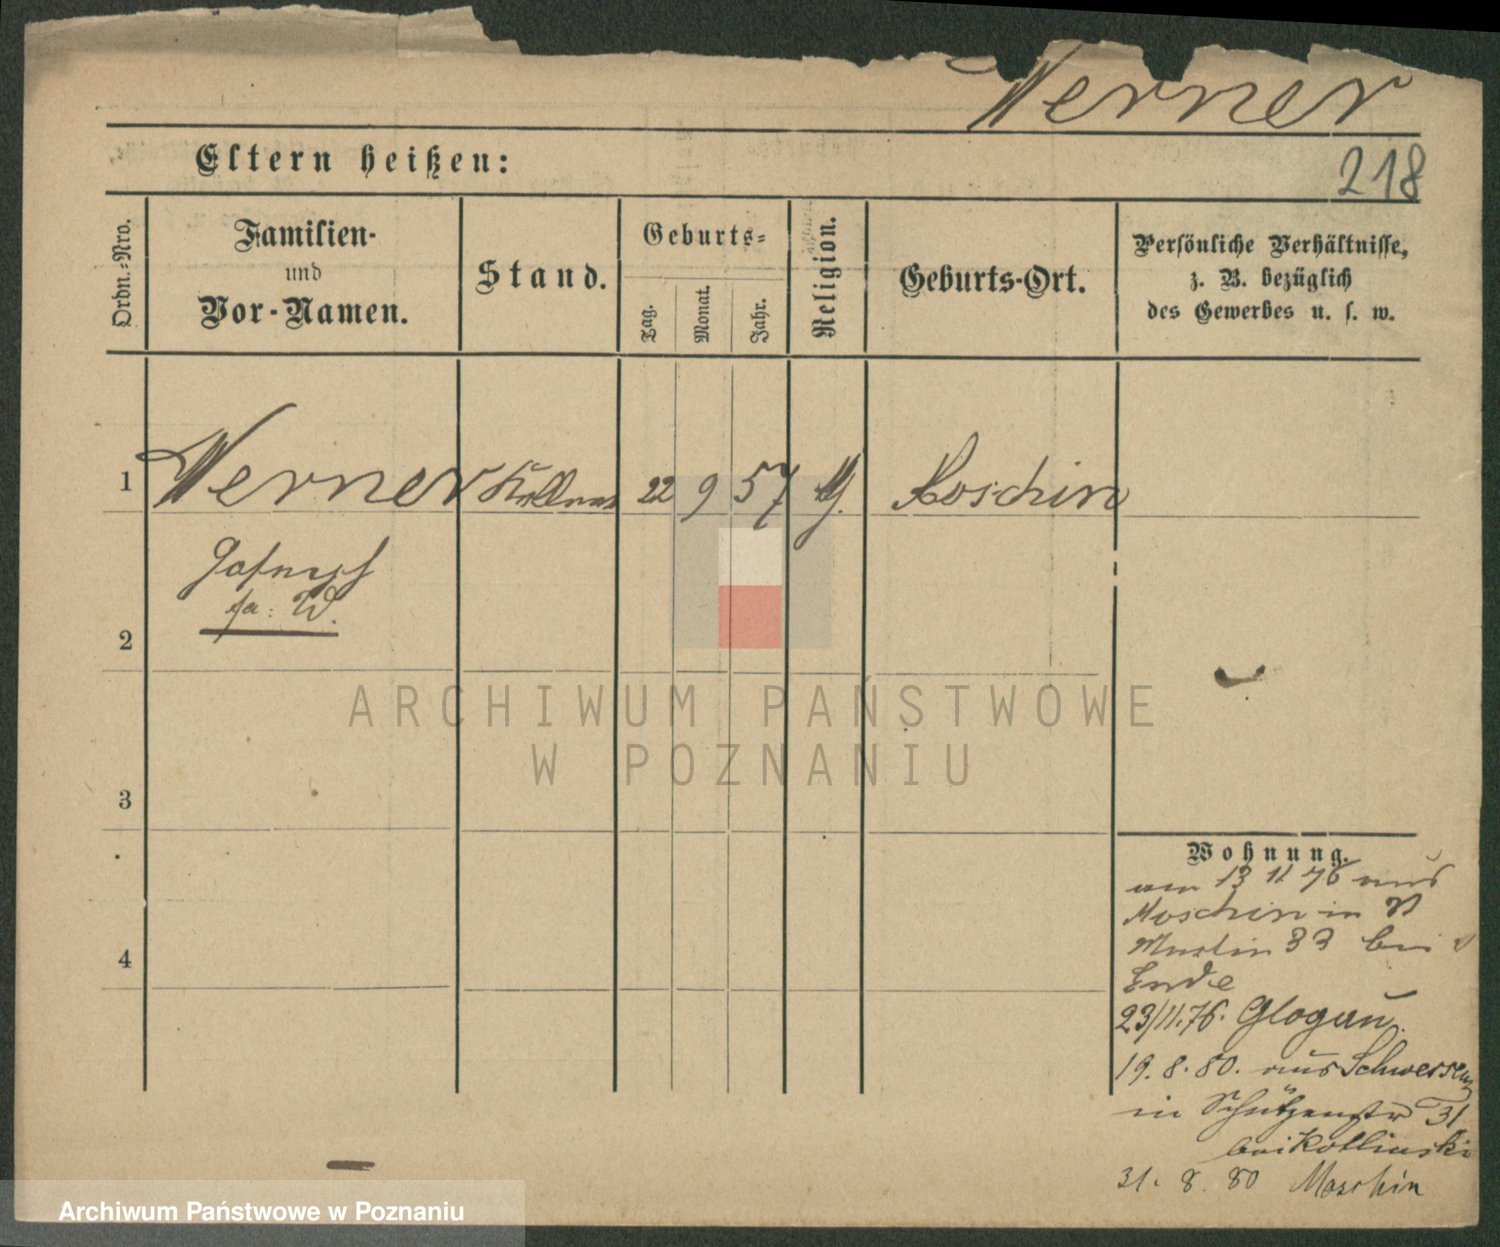 Werner
Eltern heißen:
218
Ordn.-Nro.
Familien-
und
Vor-Namen.
Stand.
Geburts-
Tag.
Monat.
Jahr.
Religion.
Geburts-Ort.
Persönliche Verhältnisse,
z. B. bezüglich
des Gewerbes u. s. w.
1 Werner Kellner 22 9 57 Moschin
Joseph
fa: W.
2
3
4
Wohnung.
am 13 11 76 aus
Moschin in St
Martin 33 bei
Ende
23/11.76. Glogau.
19. 8. 80. aus Schwersenz
in Schützenstr 31
bei Kotlinski
31. 8. 80 Moschin
ARCHIWUM PAŃSTWOWE
W POZNANIU
Archiwum Państwowe w Poznaniu